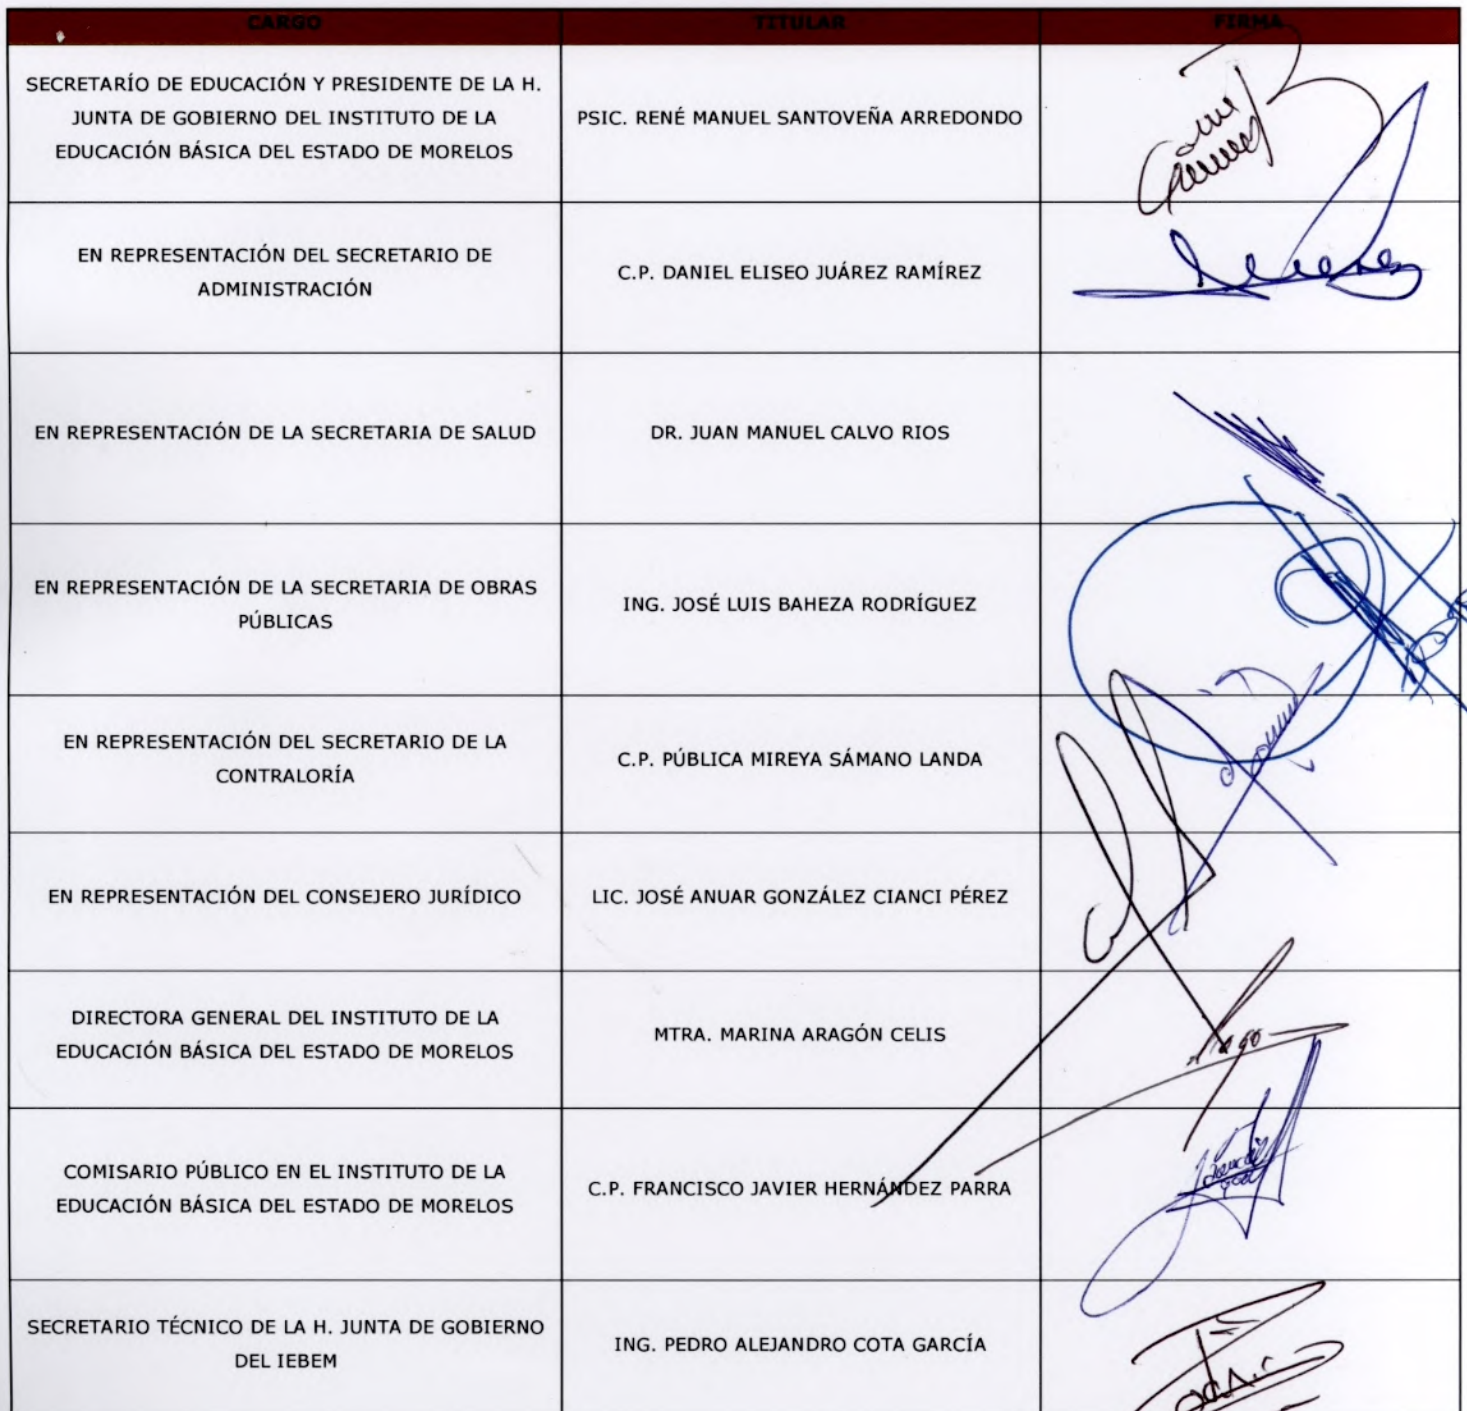 CARGO TITULAR FIRMA
SECRETARÍO DE EDUCACIÓN Y PRESIDENTE DE LA H.
JUNTA DE GOBIERNO DEL INSTITUTO DE LA
EDUCACIÓN BÁSICA DEL ESTADO DE MORELOS
PSIC. RENÉ MANUEL SANTOVEÑA ARREDONDO
EN REPRESENTACIÓN DEL SECRETARIO DE
ADMINISTRACIÓN
C.P. DANIEL ELISEO JUÁREZ RAMÍREZ
EN REPRESENTACIÓN DE LA SECRETARIA DE SALUD
DR. JUAN MANUEL CALVO RIOS
EN REPRESENTACIÓN DE LA SECRETARIA DE OBRAS
PÚBLICAS
ING. JOSÉ LUIS BAHEZA RODRÍGUEZ
EN REPRESENTACIÓN DEL SECRETARIO DE LA
CONTRALORÍA
C.P. PÚBLICA MIREYA SÁMANO LANDA
EN REPRESENTACIÓN DEL CONSEJERO JURÍDICO
LIC. JOSÉ ANUAR GONZÁLEZ CIANCI PÉREZ
DIRECTORA GENERAL DEL INSTITUTO DE LA
EDUCACIÓN BÁSICA DEL ESTADO DE MORELOS
MTRA. MARINA ARAGÓN CELIS
COMISARIO PÚBLICO EN EL INSTITUTO DE LA
EDUCACIÓN BÁSICA DEL ESTADO DE MORELOS
C.P. FRANCISCO JAVIER HERNÁNDEZ PARRA
SECRETARIO TÉCNICO DE LA H. JUNTA DE GOBIERNO
DEL IEBEM
ING. PEDRO ALEJANDRO COTA GARCÍA